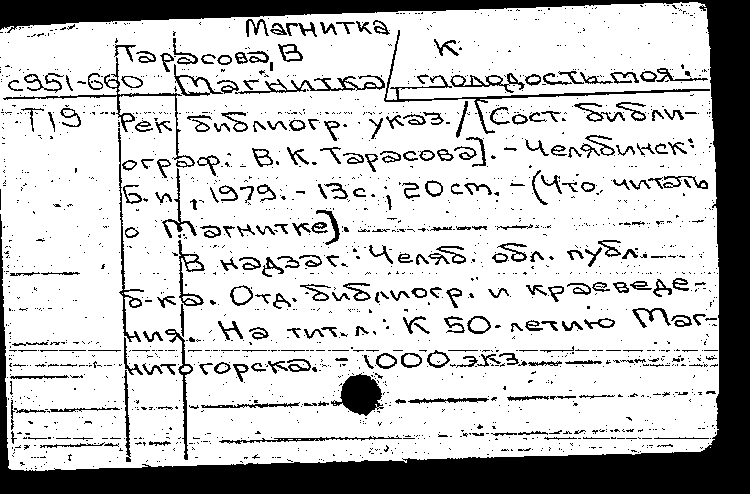 Магнитка
Тарасова, В К.
с951-660 Магнитка / молодость моя:
Т19 Рек. библиогр. указ. / [Сост. библи-
ограф: В.К. Тарасова]. - Челябинск:
Б.и., 1979. - 13 с.; 20 cm. - (Что читать
о Магнитке).
В надзаг.: Челяб. обл. публ.
б-ка. Отд. библиогр. и краеведе-
ния. На тит. л.: К 50-летию Маг-
нитогорска. - 1000 экз.